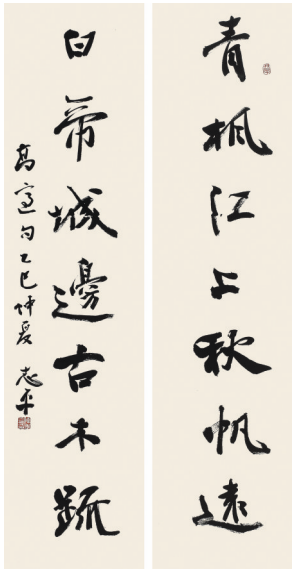 青楓江上秋帆遠
白帝城邊古木疏
高適句乙巳仲夏志平